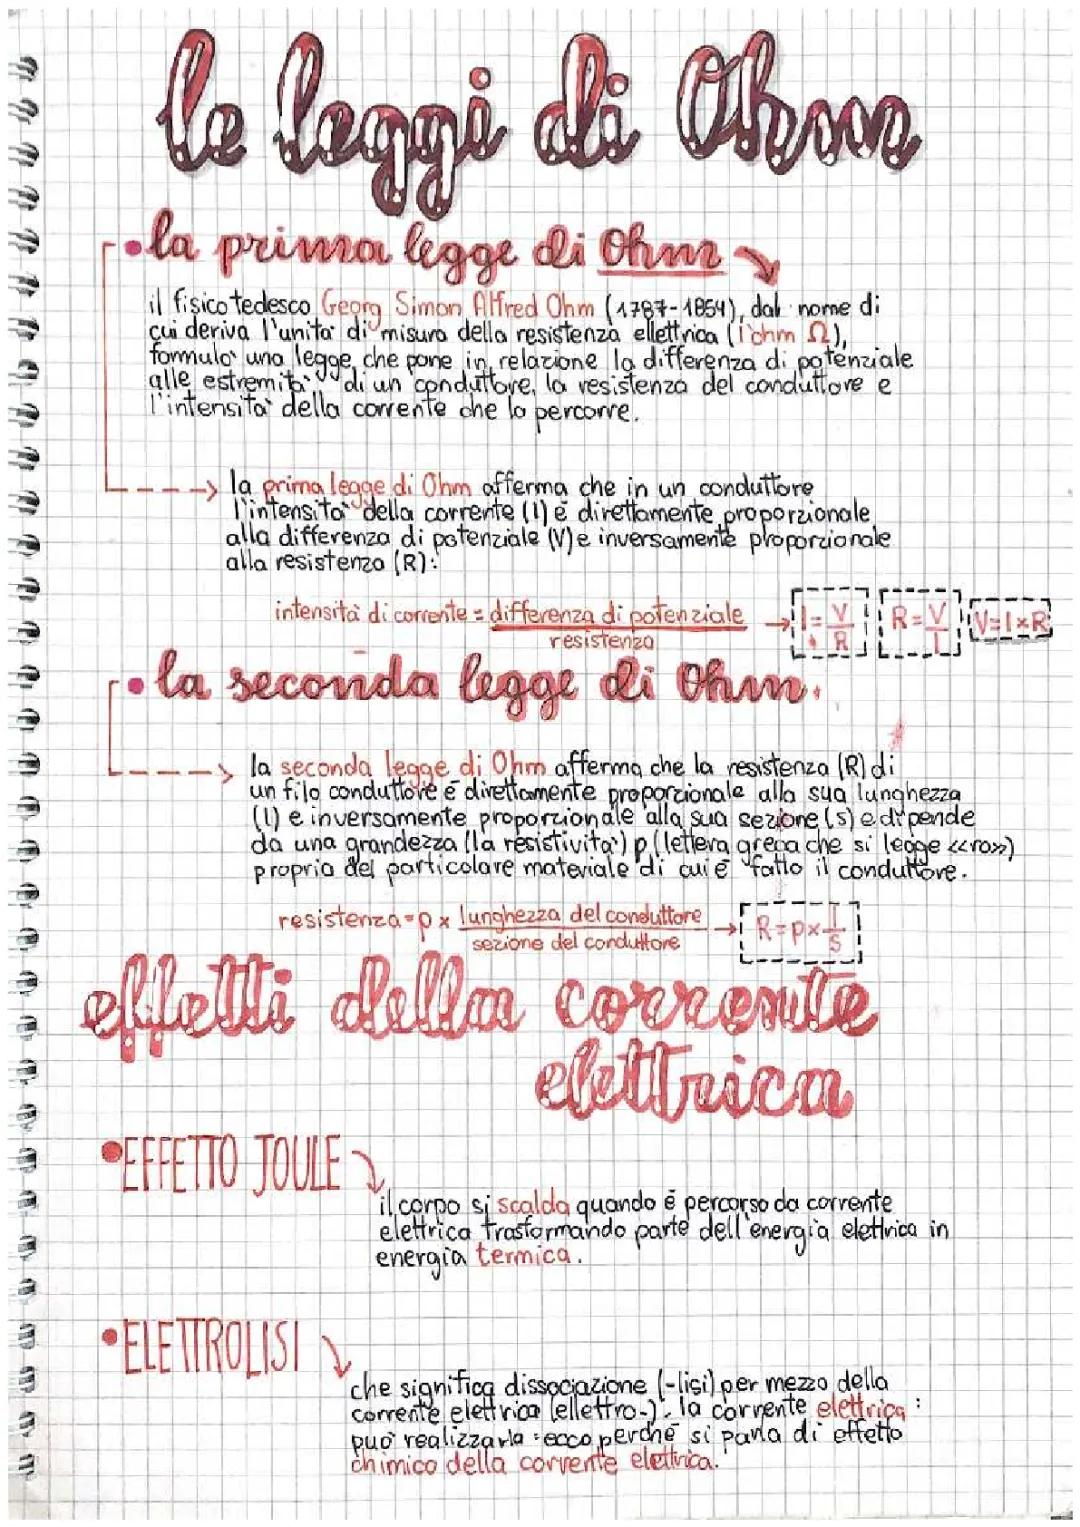 le leggi di Ohm
• la prima legge di Ohm
il fisico tedesco Georg Simon Alfred Ohm (1787-1854), dal nome di
cui deriva l'unita' di misura della resistenza ellettrica (l'ohm Ω),
formulo' una legge che pone in relazione la differenza di potenziale
alle estremita' di un conduttore, la resistenza del conduttore e
l'intensita' della corrente che lo percorre.
la prima legge di Ohm afferma che in un conduttore
l'intensita' della corrente (I) é direttamente proporzionale
alla differenza di potenziale (V) e inversamente proporzionale
alla resistenza (R):
intensità di corrente = differenza di potenziale / resistenza → I = V/R R = V/I V = I × R
• la seconda legge di Ohm.
la seconda legge di Ohm afferma che la resistenza (R) di
un filo conduttore é direttamente proporzionale alla sua lunghezza
(l) e inversamente proporzionale alla sua sezione (s) e dipende
da una grandezza (la resistivita') ρ (lettera greca che si legge «ro»)
propria del particolare materiale di cui é fatto il conduttore.
resistenza = ρ × lunghezza del conduttore / sezione del conduttore → R = ρ × l/s
effetti della corrente
elettrica
• EFFETTO JOULE
il corpo si scalda quando é percorso da corrente
elettrica trasformando parte dell'energia elettrica in
energia termica.
• ELETTROLISI
che significa dissociazione (-lisi) per mezzo della
corrente elettrica (ellettro-). la corrente elettrica
puo' realizzarla: ecco perché si parla di effetto
chimico della corrente elettrica.